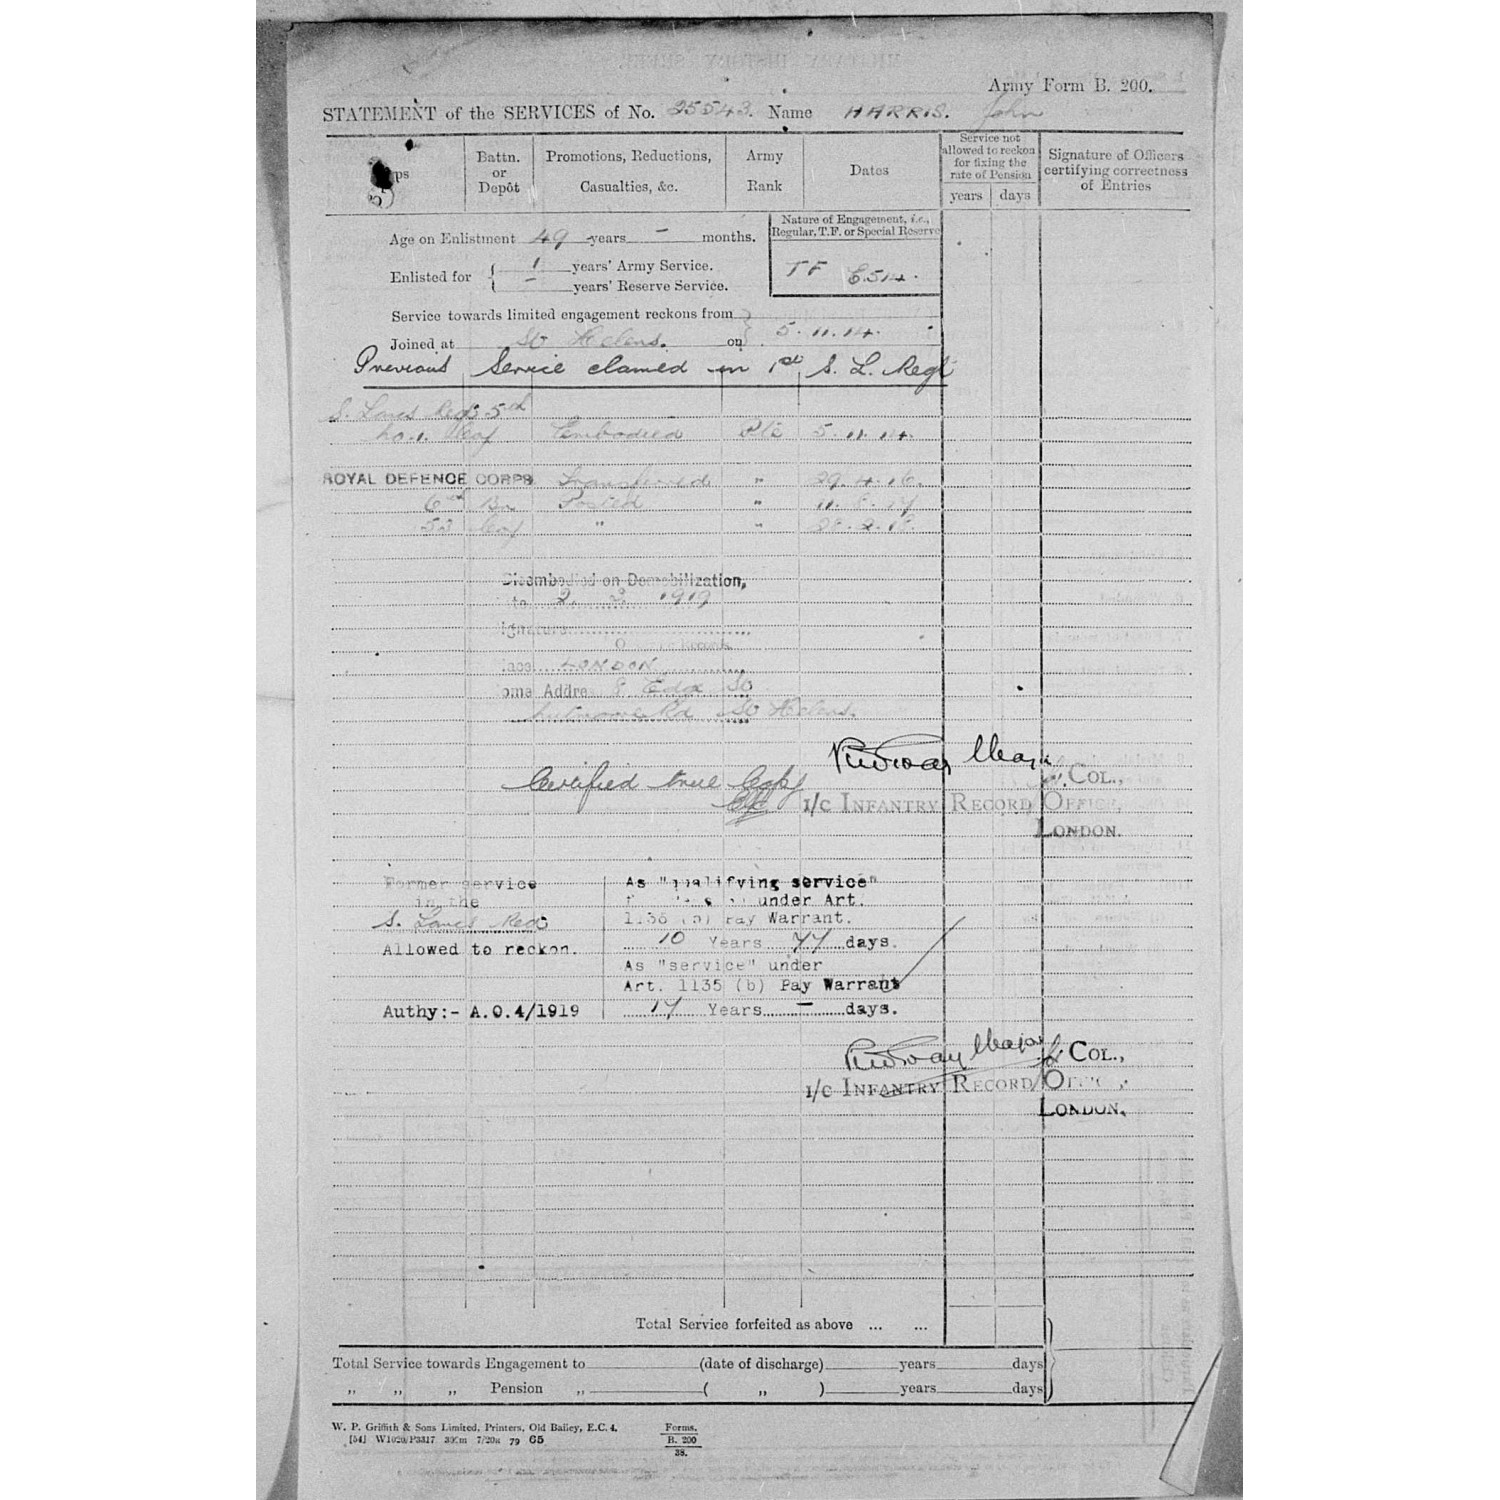 Army Form B. 200.
STATEMENT of the SERVICES of No. 25543. Name HARRIS. John
Battn. or Depôt
Promotions, Reductions, Casualties, &c.
Army Rank
Dates
Service not allowed to reckon for fixing the rate of Pension
years days
Signature of Officers certifying correctness of Entries
Age on Enlistment 49 years - months.
Nature of Engagement, i.e., Regular, T.F. or Special Reserve
TF
Enlisted for { 1 years' Army Service.
{ - years' Reserve Service.
Service towards limited engagement reckons from
Joined at St Helens. on 5.11.14.
Previous Service clamed in 1st S. L. Regt
S. Lancs Regt 5th
No. 1. Coy Embodied Pte 5.11.14.
ROYAL DEFENCE CORPS Transferred " 29.4.16.
6th Bn Posted " 11.8.17
53 Coy " " 28.2.18.
Disembodied on Demobilization,
2. 2. 1919
LONDON
8 Edge St
Rd St Helens.
Major
Certified true Copy
for COL.,
I/C INFANTRY RECORD OFFICE,
LONDON.
Former service in the
S. Lancs Regt
Allowed to reckon.
Authy:- A.O.4/1919
As "qualifying service"
under Art.
1135 (b) Pay Warrant.
10 Years 77 days.
As "service" under
Art. 1135 (b) Pay Warrant
17 Years - days.
Major
for COL.,
I/C INFANTRY RECORD OFFICE,
LONDON.
Total Service forfeited as above ... ...
Total Service towards Engagement to (date of discharge) years days
" " " Pension " ( " ) years days
W. P. Griffith & Sons Limited, Printers, Old Bailey, E.C. 4.
[54] W1020/P3317 300m 7/20K 79 65
Forms.
B. 200
38.